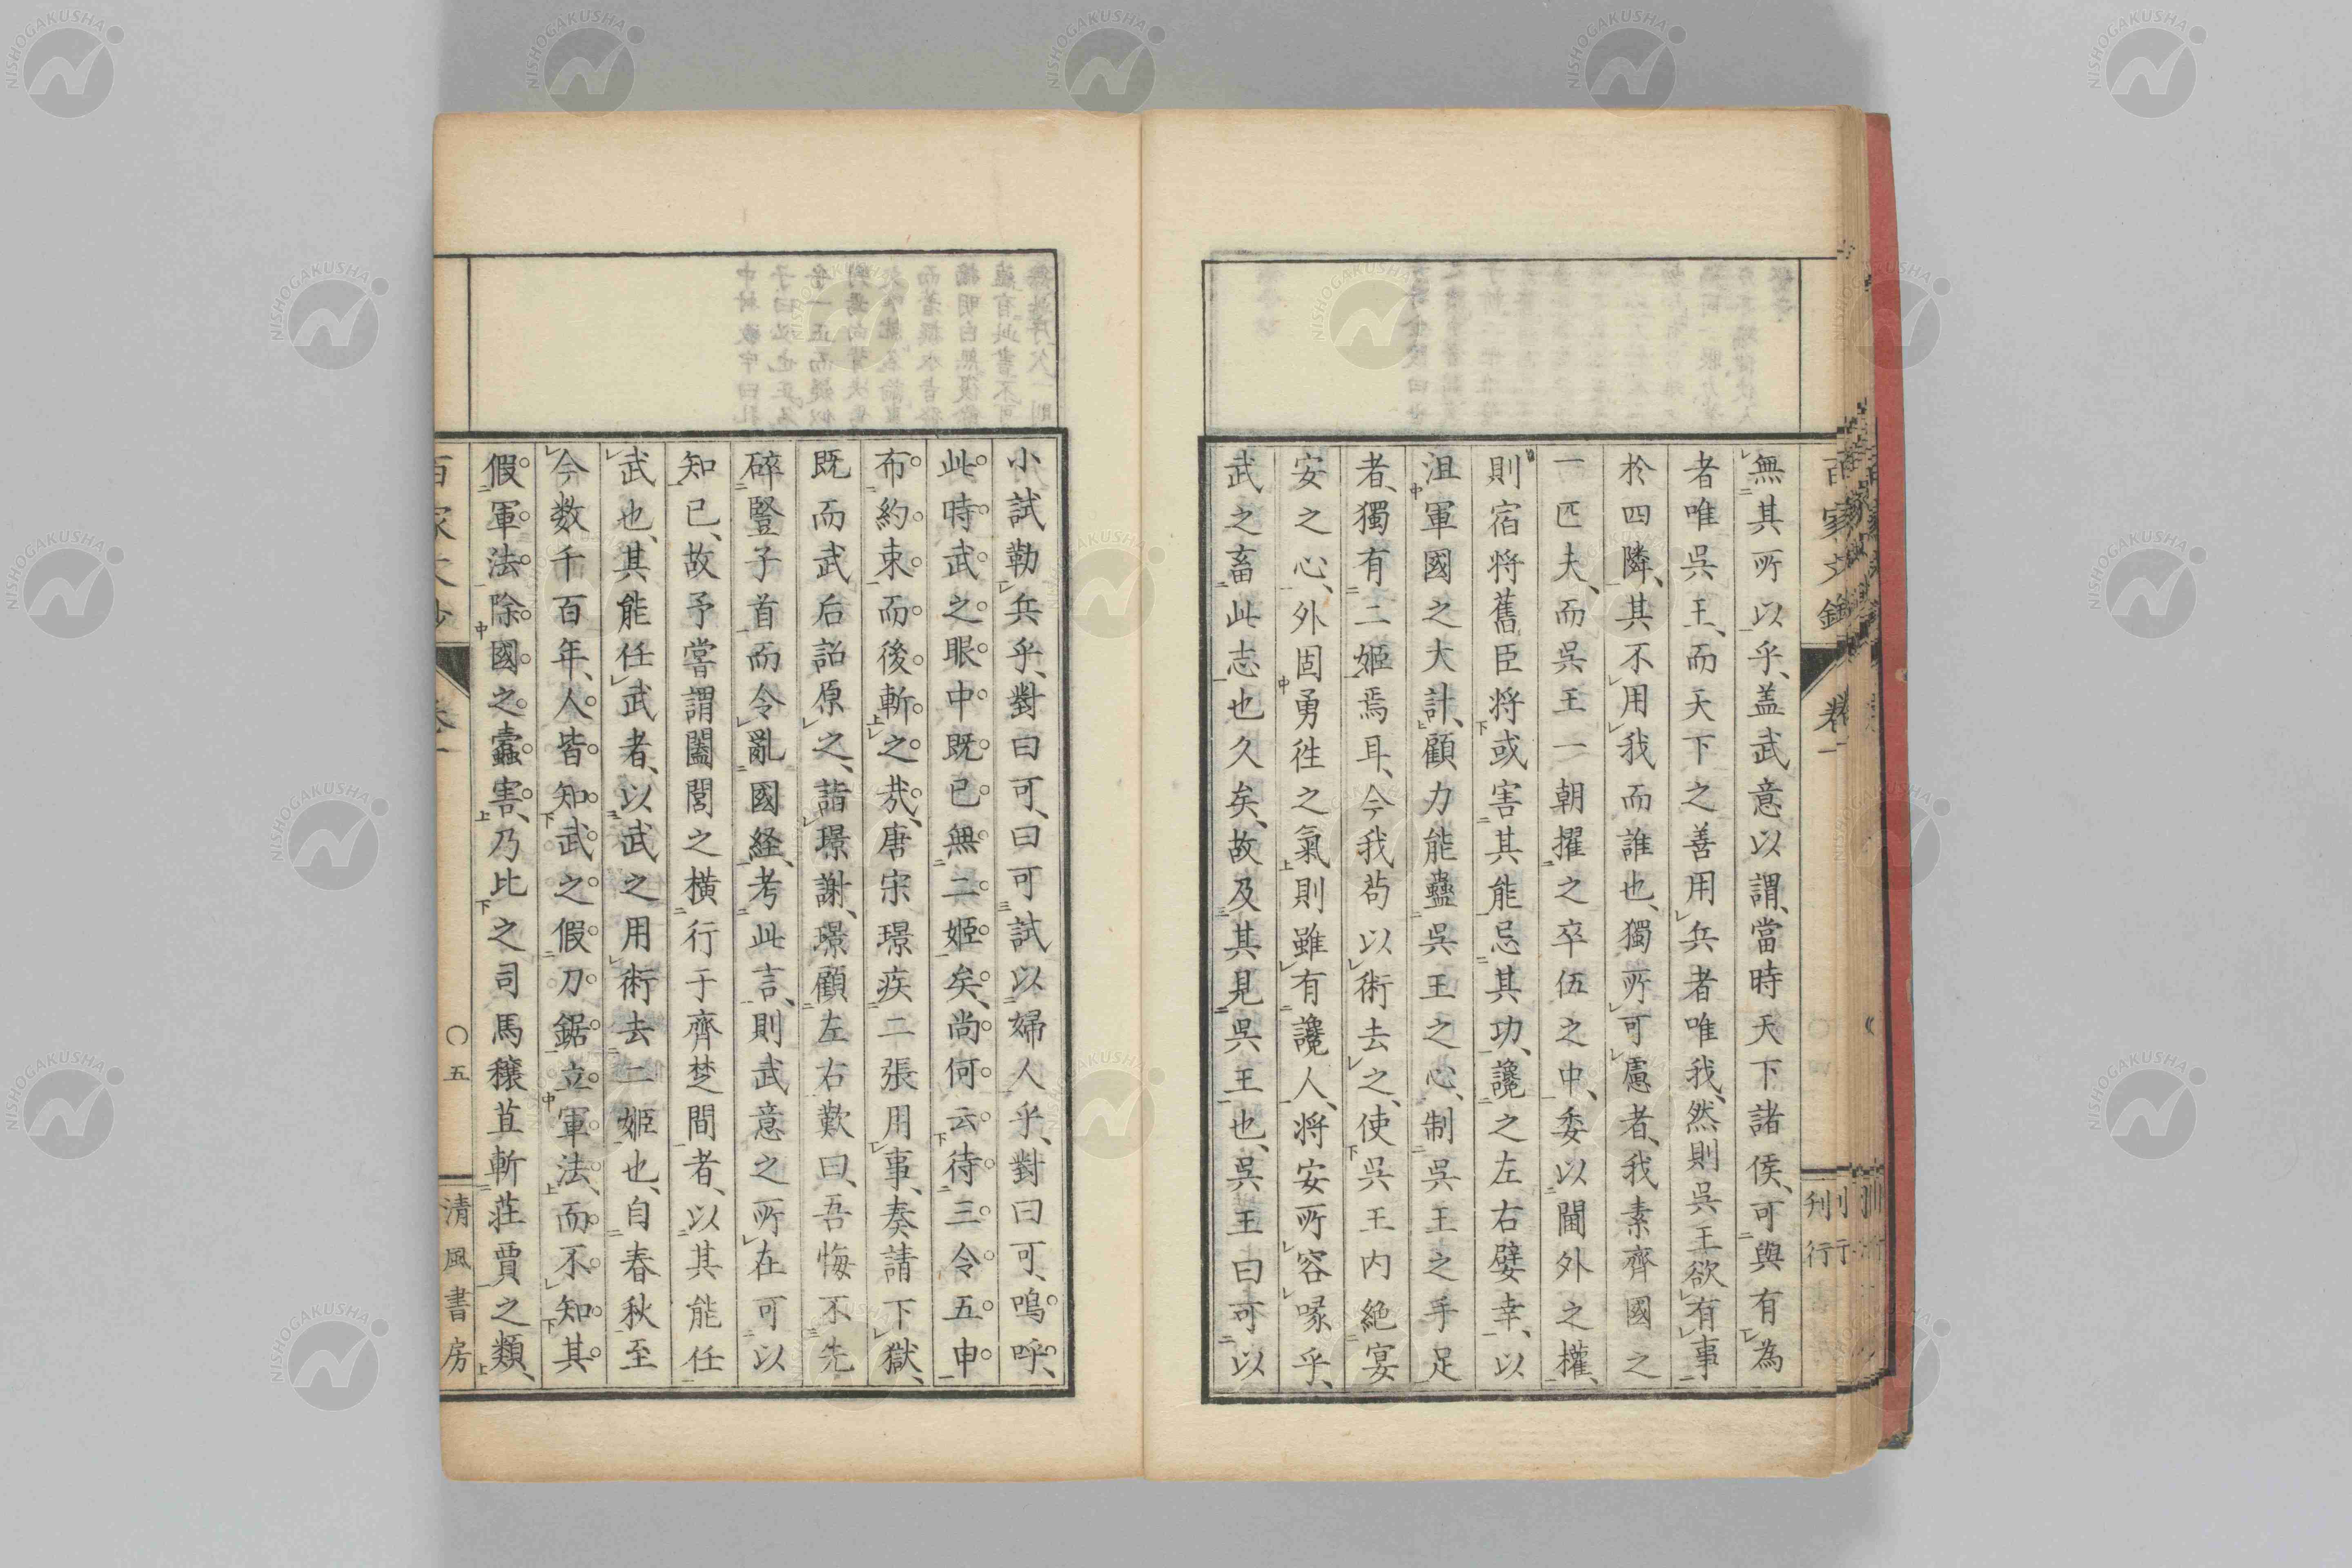 無其所以乎、盖武意以謂、當時天下諸侯、可與有為
者唯吳王、而天下之善用兵者唯我、然則吳王欲有事
於四隣、其不用我而誰也、獨所可慮者、我素齊國之
一匹夫、而吳王一朝擢之卒伍之中、委以閫外之權、
則宿将舊臣将或害其能忌其功、讒之左右嬖幸、以
沮軍國之大計、顧力能蠱吳王之心、制吳王之手足
者、獨有二姬焉耳、今我苟以術去之、使吳王内絶宴
安之心、外固勇徃之氣則雖有讒人、将安所容喙乎、
武之畜此志也久矣、故及其見吳王也、吳王曰可以
小試勒兵乎、對曰可、曰可試以婦人乎、對曰可、嗚呼、
此時武之眼中既已無二姬矣、尚何云待三令五申
布約束而後斬之㢤、唐宋璟疾二張用事、奏請下獄、
既而武后詔原之、詣璟謝、璟顧左右歎曰、吾悔不先
碎豎子首而令亂國経、考此言、則武意之所在可以
知已、故予嘗謂闔閭之橫行于齊楚間者、以其能任
武也、其能任武者、以武之用術去二姬也、自春秋至
今数千百年、人皆知武之假刀鋸立軍法、而不知其
假軍法除國之蠹害、乃比之司馬穰苴斬荘賈之類、
百家文鈔
卷一
〇五
清風書房